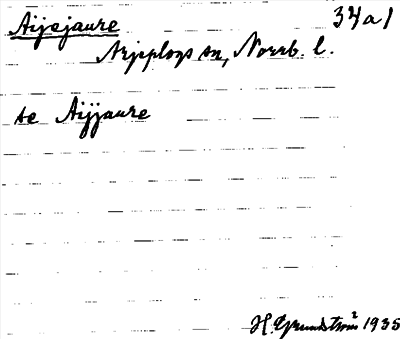 Aijejaure 34a1
Arjeplogs sn, Norrb. l.
se Aijjaure
H. Grundström 1935